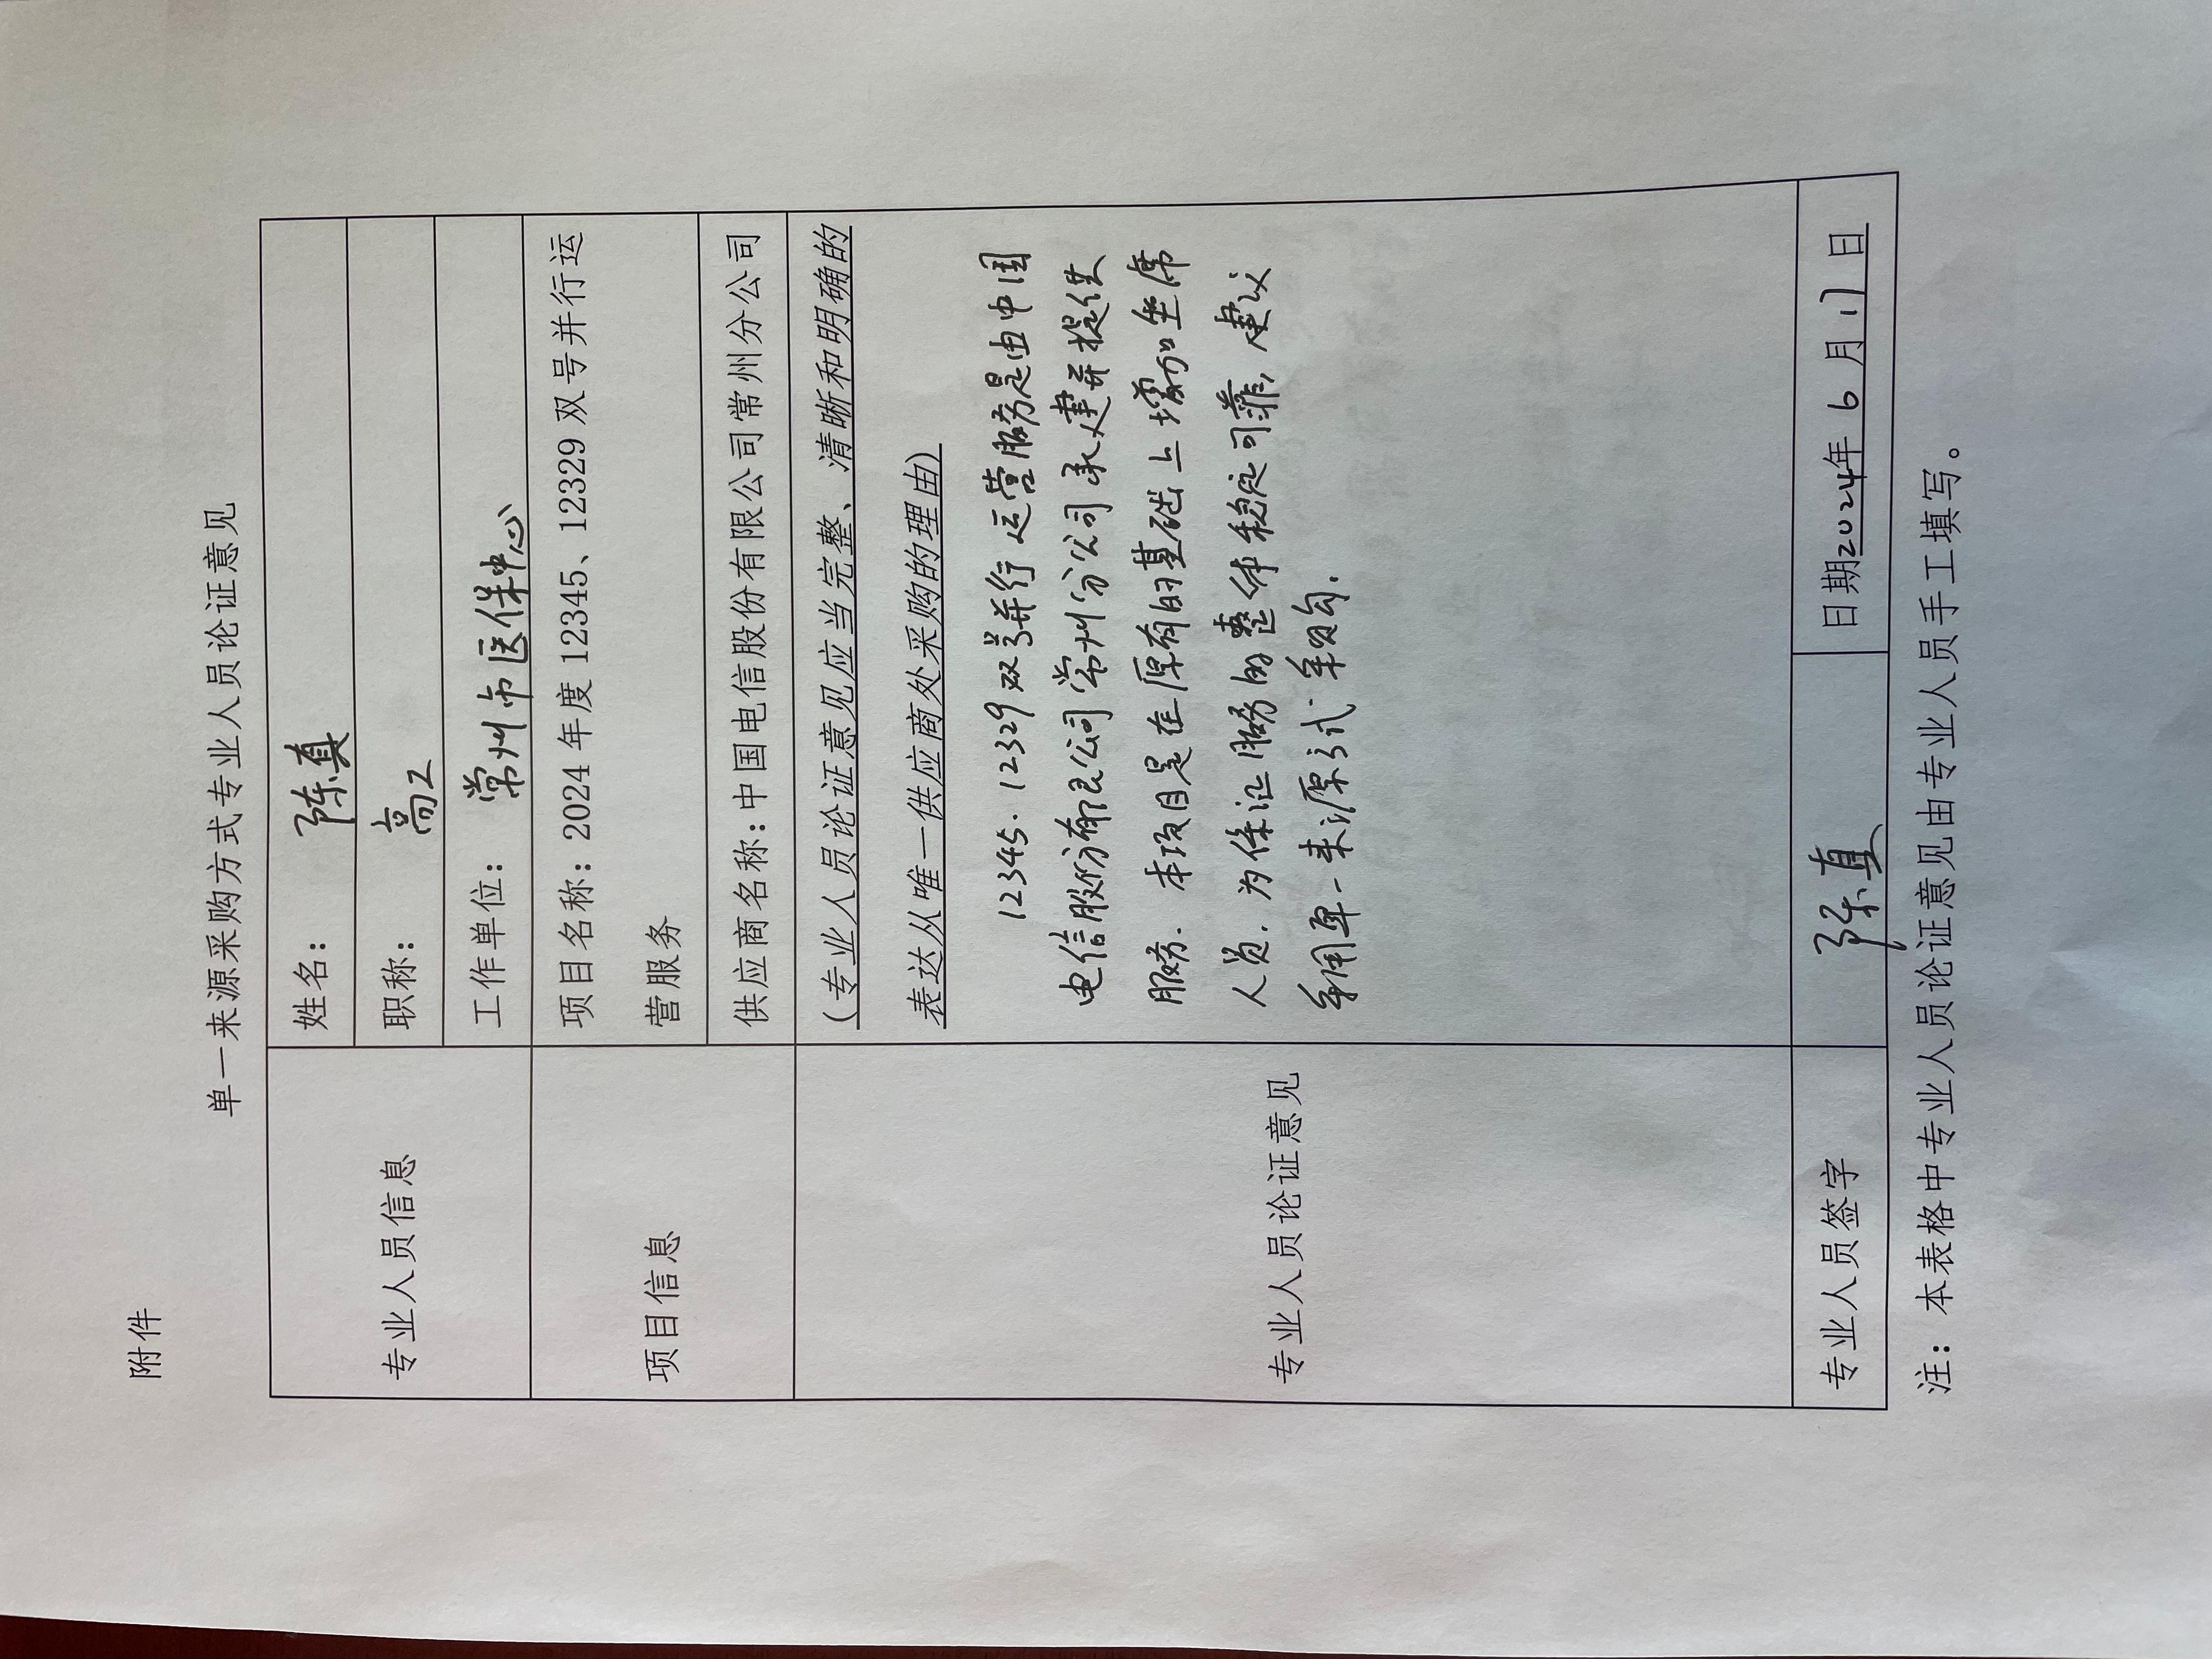 附件
单一来源采购方式专业人员论证意见
专业人员信息
姓名： 陈真
职称： 高工
工作单位： 常州市医保中心
项目信息
项目名称：2024年度12345、12329双号并行运
营服务
供应商名称：中国电信股份有限公司常州分公司
专业人员论证意见
（专业人员论证意见应当完整、清晰和明确的
表达从唯一供应商处采购的理由）
12345、12329双号并行运营服务是由中国
电信股份有限公司常州分公司承建并提供
服务。本项目是在原有的基础上增加坐席
人员，为保证服务的整体稳定可靠，建议
采用单一来源方式采购。
专业人员签字
陈真
日期2024年6月17日
注：本表格中专业人员论证意见由专业人员手工填写。